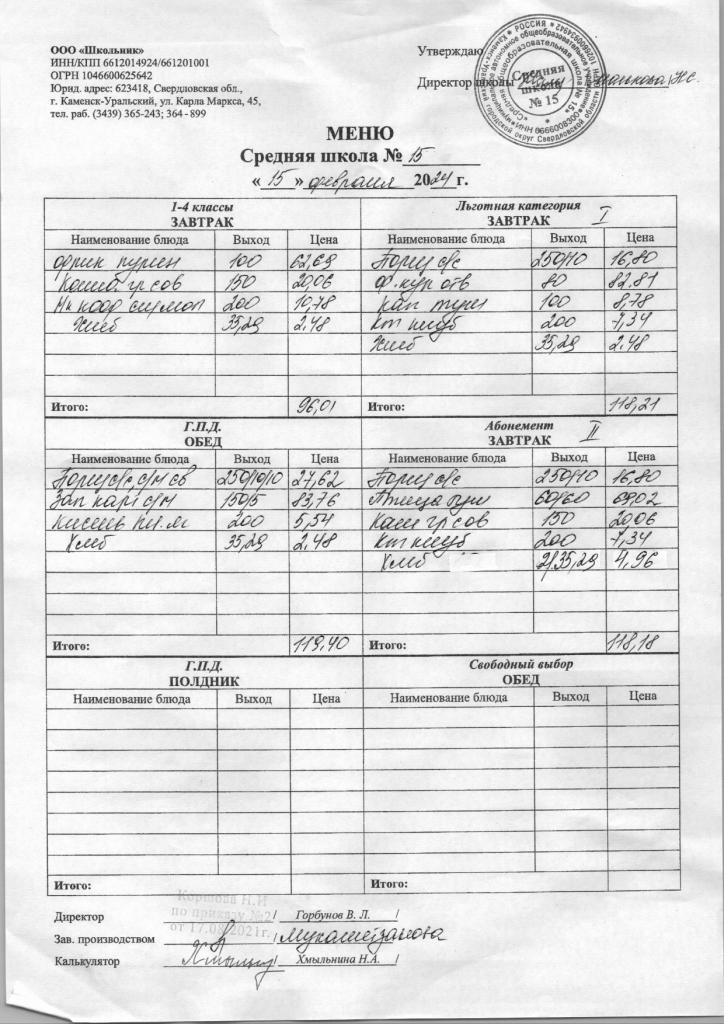 ООО «Школьник»
ИНН/КПП 6612014924/661201001
ОГРН 1046600625642
Юрид. адрес: 623418, Свердловская обл.,
г. Каменск-Уральский, ул. Карла Маркса, 45,
тел. раб. (3439) 365-243; 364 - 899
Утверждаю
Директор школы
Средняя школа № 15
МЕНЮ
Средняя школа № 15
« 15 » февраля 2024 г.
1-4 классы
ЗАВТРАК
Наименование блюда Выход Цена
100 62,69
Каша гр сов 150 20,06
200 10,78
Хлеб 35,29 2,48
Итого: 96,01
Льготная категория
ЗАВТРАК I
Наименование блюда Выход Цена
Борщ с/с 250/10 16,80
ф. кур отв 80 82,81
Кап туш 100 8,78
200 7,34
Хлеб 35,29 2,48
Итого: 118,21
Г.П.Д.
ОБЕД
Наименование блюда Выход Цена
Борщ с/с с/м св 250/10/10 27,62
Зап карт с/м 150/5 83,76
Кисель 200 5,54
Хлеб 35,29 2,48
Итого: 119,40
Абонемент
ЗАВТРАК II
Наименование блюда Выход Цена
Борщ с/с 250/10 16,80
Птица туш 60/60 69,02
Каша гр сов 150 20,06
200 7,34
Хлеб 2/35,29 4,96
Итого: 118,18
Г.П.Д.
ПОЛДНИК
Наименование блюда Выход Цена
Итого:
Свободный выбор
ОБЕД
Наименование блюда Выход Цена
Итого:
Коршова Н.И
по приказу №2
от 17.08.2021г.
Директор / Горбунов В. Л. /
Зав. производством / Мухаметзянова
Калькулятор / Хмыльнина Н.А. /